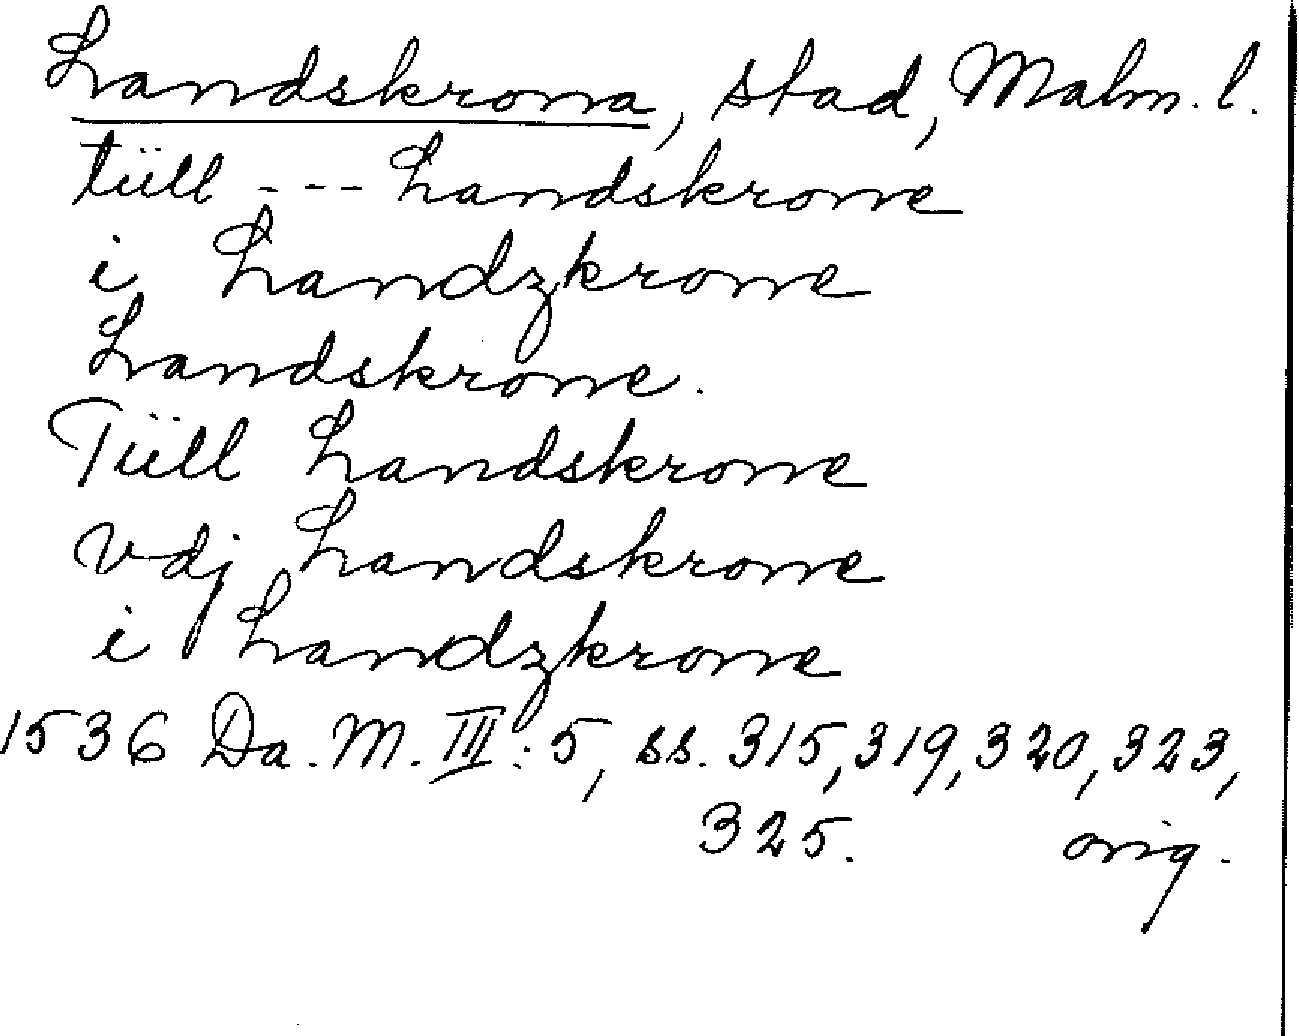 Landskrona, stad, Malm. l.
tüll --- Landskrone
i Landzkrone
Landskrone.
Tüll Landskrone
vdj Landskrone
i Landzkrone
1536 Da. M. III: 5, ss. 315, 319, 320, 323,
325. orig.